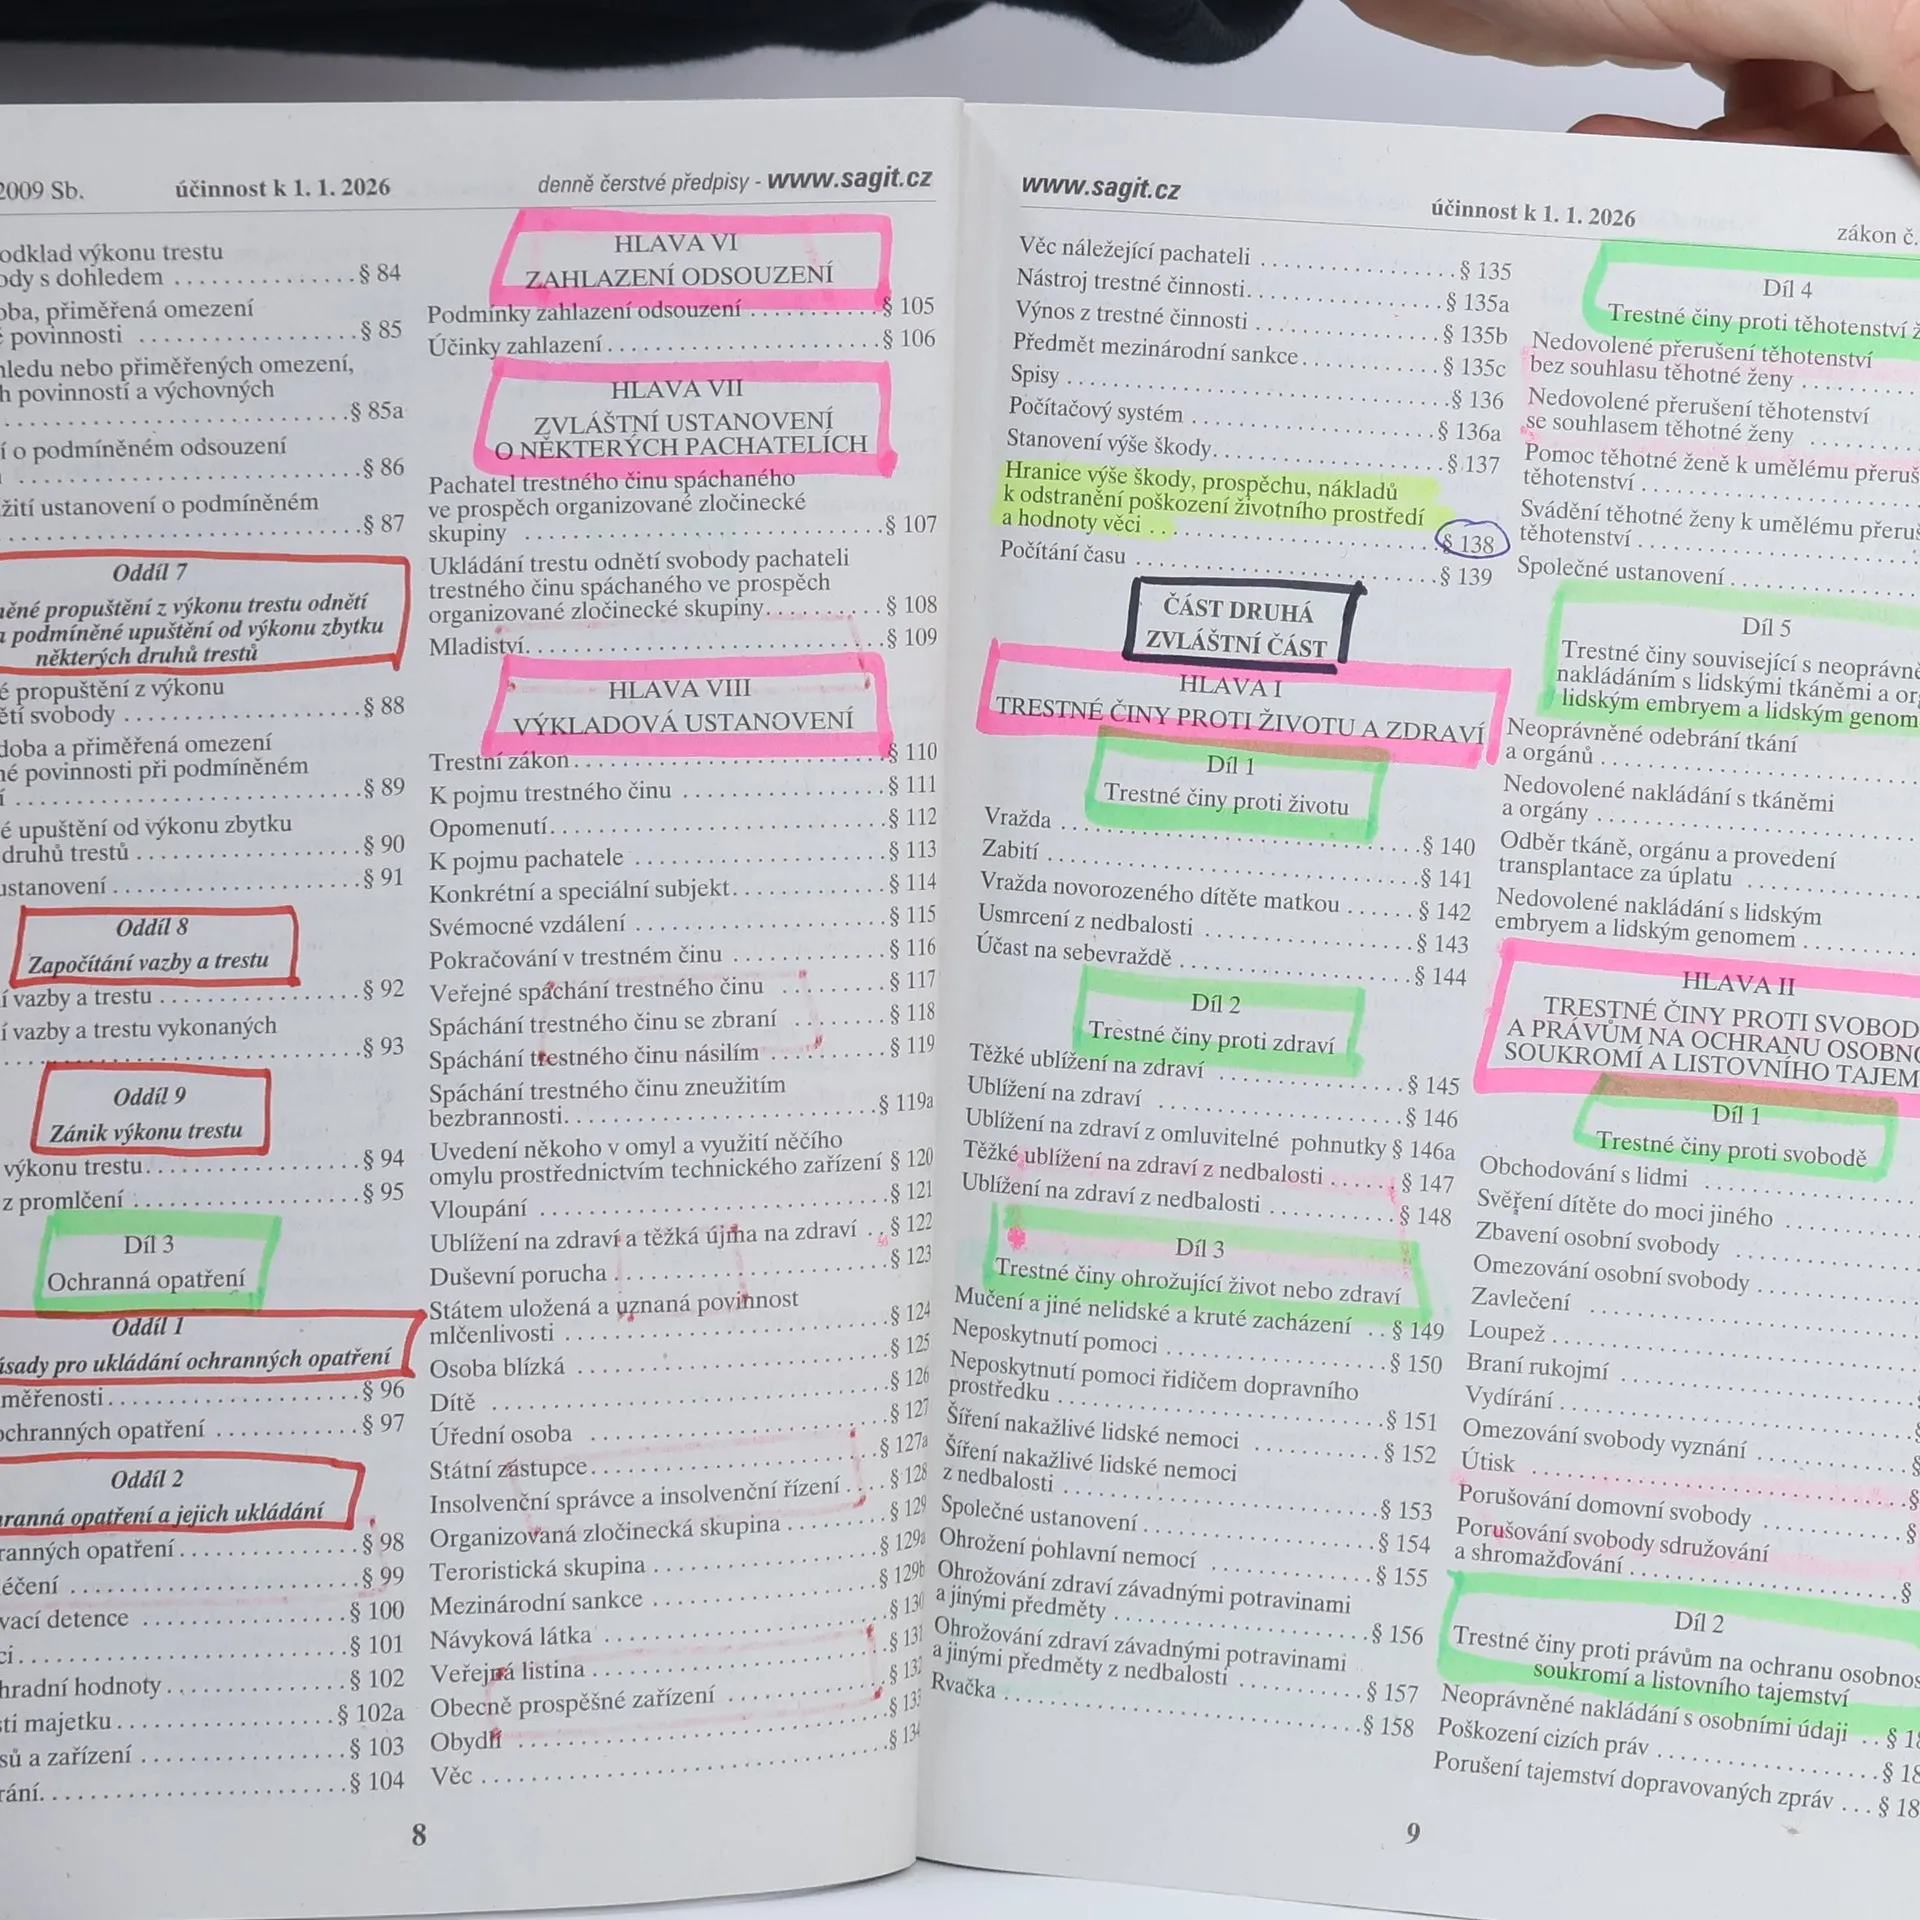 2009 Sb.
účinnost k 1. 1. 2026
denně čerstvé předpisy - www.sagit.cz
odklad výkonu trestu
s dohledem . . . . . . . . . . § 84
přiměřená omezení
povinnosti . . . . . . . . . . § 85
nebo přiměřených omezení,
povinností a výchovných
. . . . . . . . . . § 85a
o podmíněném odsouzení
. . . . . . . . . . § 86
ustanovení o podmíněném
. . . . . . . . . . § 87
Oddíl 7
propuštění z výkonu trestu odnětí
a podmíněné upuštění od výkonu zbytku
některých druhů trestů
propuštění z výkonu
svobody . . . . . . . . . . § 88
doba a přiměřená omezení
povinnosti při podmíněném
. . . . . . . . . . § 89
upuštění od výkonu zbytku
druhů trestů . . . . . . . . . . § 90
ustanovení . . . . . . . . . . § 91
Oddíl 8
Započítání vazby a trestu
vazby a trestu . . . . . . . . . . § 92
vazby a trestu vykonaných
. . . . . . . . . . § 93
Oddíl 9
Zánik výkonu trestu
výkonu trestu . . . . . . . . . . § 94
z promlčení . . . . . . . . . . § 95
Díl 3
Ochranná opatření
Oddíl 1
pro ukládání ochranných opatření
. . . . . . . . . . § 96
ochranných opatření . . . . . . . . . . § 97
Oddíl 2
opatření a jejich ukládání
opatření . . . . . . . . . . § 98
. . . . . . . . . . § 99
detence . . . . . . . . . . § 100
. . . . . . . . . . § 101
hodnoty . . . . . . . . . . § 102
majetku . . . . . . . . . . § 102a
a zařízení . . . . . . . . . . § 103
. . . . . . . . . . § 104
HLAVA VI
ZAHLAZENÍ ODSOUZENÍ
Podmínky zahlazení odsouzení . . . . . . . . . . § 105
Účinky zahlazení . . . . . . . . . . § 106
HLAVA VII
ZVLÁŠTNÍ USTANOVENÍ
O NĚKTERÝCH PACHATELÍCH
Pachatel trestného činu spáchaného
ve prospěch organizované zločinecké
skupiny . . . . . . . . . . § 107
Ukládání trestu odnětí svobody pachateli
trestného činu spáchaného ve prospěch
organizované zločinecké skupiny . . . . . . . . . . § 108
Mladiství . . . . . . . . . . § 109
HLAVA VIII
VÝKLADOVÁ USTANOVENÍ
Trestní zákon . . . . . . . . . . § 110
K pojmu trestného činu . . . . . . . . . . § 111
Opomenutí . . . . . . . . . . § 112
K pojmu pachatele . . . . . . . . . . § 113
Konkrétní a speciální subjekt . . . . . . . . . . § 114
Svémocné vzdálení . . . . . . . . . . § 115
Pokračování v trestném činu . . . . . . . . . . § 116
Veřejné spáchání trestného činu . . . . . . . . . . § 117
Spáchání trestného činu se zbraní . . . . . . . . . . § 118
Spáchání trestného činu násilím . . . . . . . . . . § 119
Spáchání trestného činu zneužitím
bezbrannosti . . . . . . . . . . § 119a
Uvedení někoho v omyl a využití něčího
omylu prostřednictvím technického zařízení § 120
Vloupání . . . . . . . . . . § 121
Ublížení na zdraví a těžká újma na zdraví . . § 122
Duševní porucha . . . . . . . . . . § 123
Státem uložená a uznaná povinnost
mlčenlivosti . . . . . . . . . . § 124
Osoba blízká . . . . . . . . . . § 125
Dítě . . . . . . . . . . § 126
Úřední osoba . . . . . . . . . . § 127
Státní zástupce . . . . . . . . . . § 127a
Insolvenční správce a insolvenční řízení . . . . § 128
Organizovaná zločinecká skupina . . . . . . . . . . § 129
Teroristická skupina . . . . . . . . . . § 129a
Mezinárodní sankce . . . . . . . . . . § 129b
Návyková látka . . . . . . . . . . § 130
Veřejná listina . . . . . . . . . . § 131
Obecně prospěšné zařízení . . . . . . . . . . § 132
Obydlí . . . . . . . . . . § 133
Věc . . . . . . . . . . § 134
8
www.sagit.cz
účinnost k 1. 1. 2026
zákon č.
Věc náležející pachateli . . . . . . . . . . § 135
Nástroj trestné činnosti . . . . . . . . . . § 135a
Výnos z trestné činnosti . . . . . . . . . . § 135b
Předmět mezinárodní sankce . . . . . . . . . . § 135c
Spisy . . . . . . . . . . § 136
Počítačový systém . . . . . . . . . . § 136a
Stanovení výše škody . . . . . . . . . . § 137
Hranice výše škody, prospěchu, nákladů
k odstranění poškození životního prostředí
a hodnoty věci . . . . . . . . . . § 138
Počítání času . . . . . . . . . . § 139
ČÁST DRUHÁ
ZVLÁŠTNÍ ČÁST
HLAVA I
TRESTNÉ ČINY PROTI ŽIVOTU A ZDRAVÍ
Díl 1
Trestné činy proti životu
Vražda . . . . . . . . . . § 140
Zabití . . . . . . . . . . § 141
Vražda novorozeného dítěte matkou . . . . . . § 142
Usmrcení z nedbalosti . . . . . . . . . . § 143
Účast na sebevraždě . . . . . . . . . . § 144
Díl 2
Trestné činy proti zdraví
Těžké ublížení na zdraví . . . . . . . . . . § 145
Ublížení na zdraví . . . . . . . . . . § 146
Ublížení na zdraví z omluvitelné pohnutky § 146a
Těžké ublížení na zdraví z nedbalosti . . . . . . § 147
Ublížení na zdraví z nedbalosti . . . . . . . . . . § 148
Díl 3
Trestné činy ohrožující život nebo zdraví
Mučení a jiné nelidské a kruté zacházení . . § 149
Neposkytnutí pomoci . . . . . . . . . . § 150
Neposkytnutí pomoci řidičem dopravního
prostředku . . . . . . . . . . § 151
Šíření nakažlivé lidské nemoci . . . . . . . . . . § 152
Šíření nakažlivé lidské nemoci
z nedbalosti . . . . . . . . . . § 153
Společné ustanovení . . . . . . . . . . § 154
Ohrožení pohlavní nemocí . . . . . . . . . . § 155
Ohrožování zdraví závadnými potravinami
a jinými předměty . . . . . . . . . . § 156
Ohrožování zdraví závadnými potravinami
a jinými předměty z nedbalosti . . . . . . . . . . § 157
Rvačka . . . . . . . . . . § 158
Díl 4
Trestné činy proti těhotenství
Nedovolené přerušení těhotenství
bez souhlasu těhotné ženy . . . . . . . . . .
Nedovolené přerušení těhotenství
se souhlasem těhotné ženy . . . . . . .
Pomoc těhotné ženě k umělému
těhotenství . . . . . . . . . .
Svádění těhotné ženy k umělému
těhotenství . . . . . . . . . .
Společné ustanovení . . . . . . . . . .
Díl 5
Trestné činy související s
nakládáním s lidskými tkáněmi a
lidským embryem a lidským
Neoprávněné odebrání tkání
a orgánů . . . . . . . . . .
Nedovolené nakládání s tkáněmi
a orgány . . . . . . . . . .
Odběr tkáně, orgánu a provedení
transplantace za úplatu . . . . . . . . . .
Nedovolené nakládání s lidským
embryem a lidským genomem . . . . . . . . . .
HLAVA II
TRESTNÉ ČINY PROTI
A PRÁVŮM NA OCHRANU
SOUKROMÍ A LISTOVNÍHO
Díl 1
Trestné činy proti svobodě
Obchodování s lidmi . . . . . . . . . .
Svěření dítěte do moci jiného . . . . . . . . . .
Zbavení osobní svobody . . . . . . . . . .
Omezování osobní svobody . . . . . . . . . .
Zavlečení . . . . . . . . . .
Loupež . . . . . . . . . .
Braní rukojmí . . . . . . . . . .
Vydírání . . . . . . . . . .
Omezování svobody vyznání . . . . . . . . . . §
Útisk . . . . . . . . . . §
Porušování domovní svobody . . . . . . . . . . §
Porušování svobody sdružování
a shromažďování . . . . . . . . . . §
Díl 2
Trestné činy proti právům na ochranu
soukromí a listovního tajemství
Neoprávněné nakládání s osobními údaji . . §
Poškození cizích práv . . . . . . . . . . §
Porušení tajemství dopravovaných zpráv . . . §
9